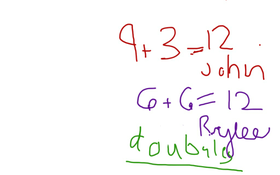 9+3=12
John
6+6=12
Rylee
doubles